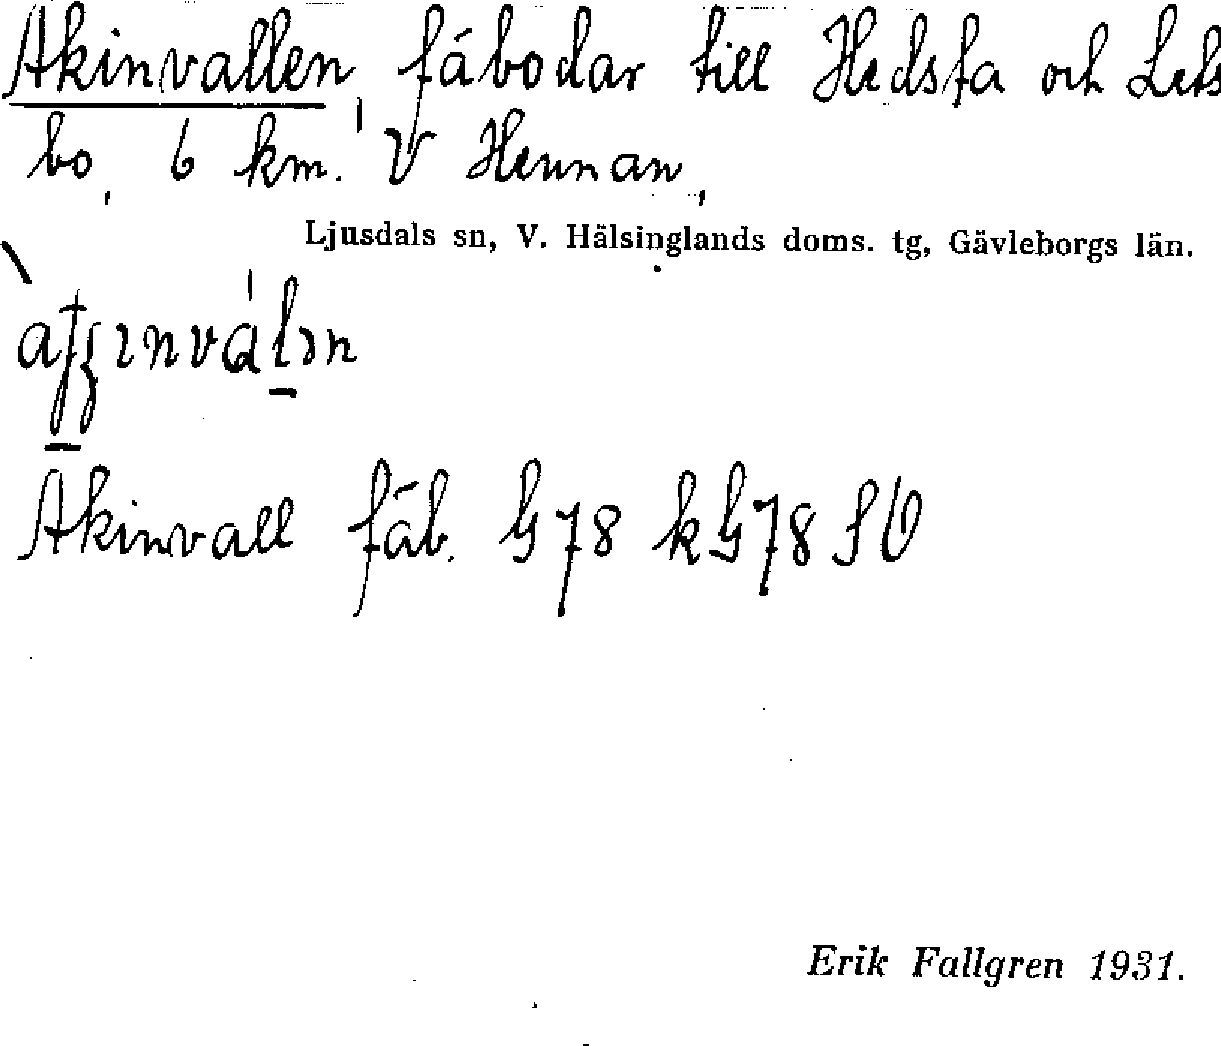 Akinvallen, fäbodar till Hedsta och Lets
bo, 6 km. V Hennan,
Ljusdals sn, V. Hälsinglands doms. tg, Gävleborgs län.
Akinvall fäb. G78 kG78 SV
Erik Fallgren 1931.